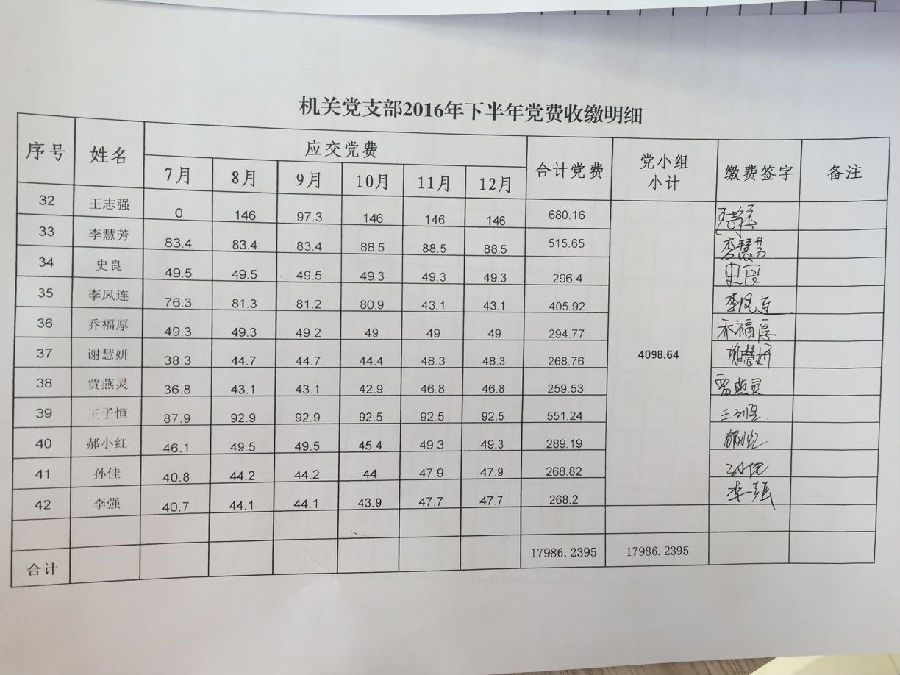 机关党支部2016年下半年党费收缴明细
序号 姓名 应交党费 合计党费 党小组小计 缴费签字 备注
7月 8月 9月 10月 11月 12月
32 王志强 0 146 97.3 146 146 146 680.16
33 李慧芳 83.4 83.4 83.4 88.5 88.5 88.5 515.65 李慧芳
34 史良 49.5 49.5 49.5 49.3 49.3 49.3 296.4
35 李凤连 76.3 81.3 81.2 80.9 43.1 43.1 405.92 李凤连
36 乔福厚 49.3 49.3 49.2 49 49 49 294.77 乔福厚
37 谢慧妍 38.3 44.7 44.7 44.4 48.3 48.3 268.76 4098.64 谢慧妍
38 贾燕灵 36.8 43.1 43.1 42.9 46.8 46.8 259.53 贾燕灵
39 王子恒 87.9 92.9 92.9 92.5 92.5 92.5 551.24
40 郝小红 46.1 49.5 49.5 45.4 49.3 49.3 289.19
41 孙佳 40.8 44.2 44.2 44 47.9 47.9 268.82
42 李强 40.7 44.1 44.1 43.9 47.7 47.7 268.2 李强
合计 17986.2395 17986.2395